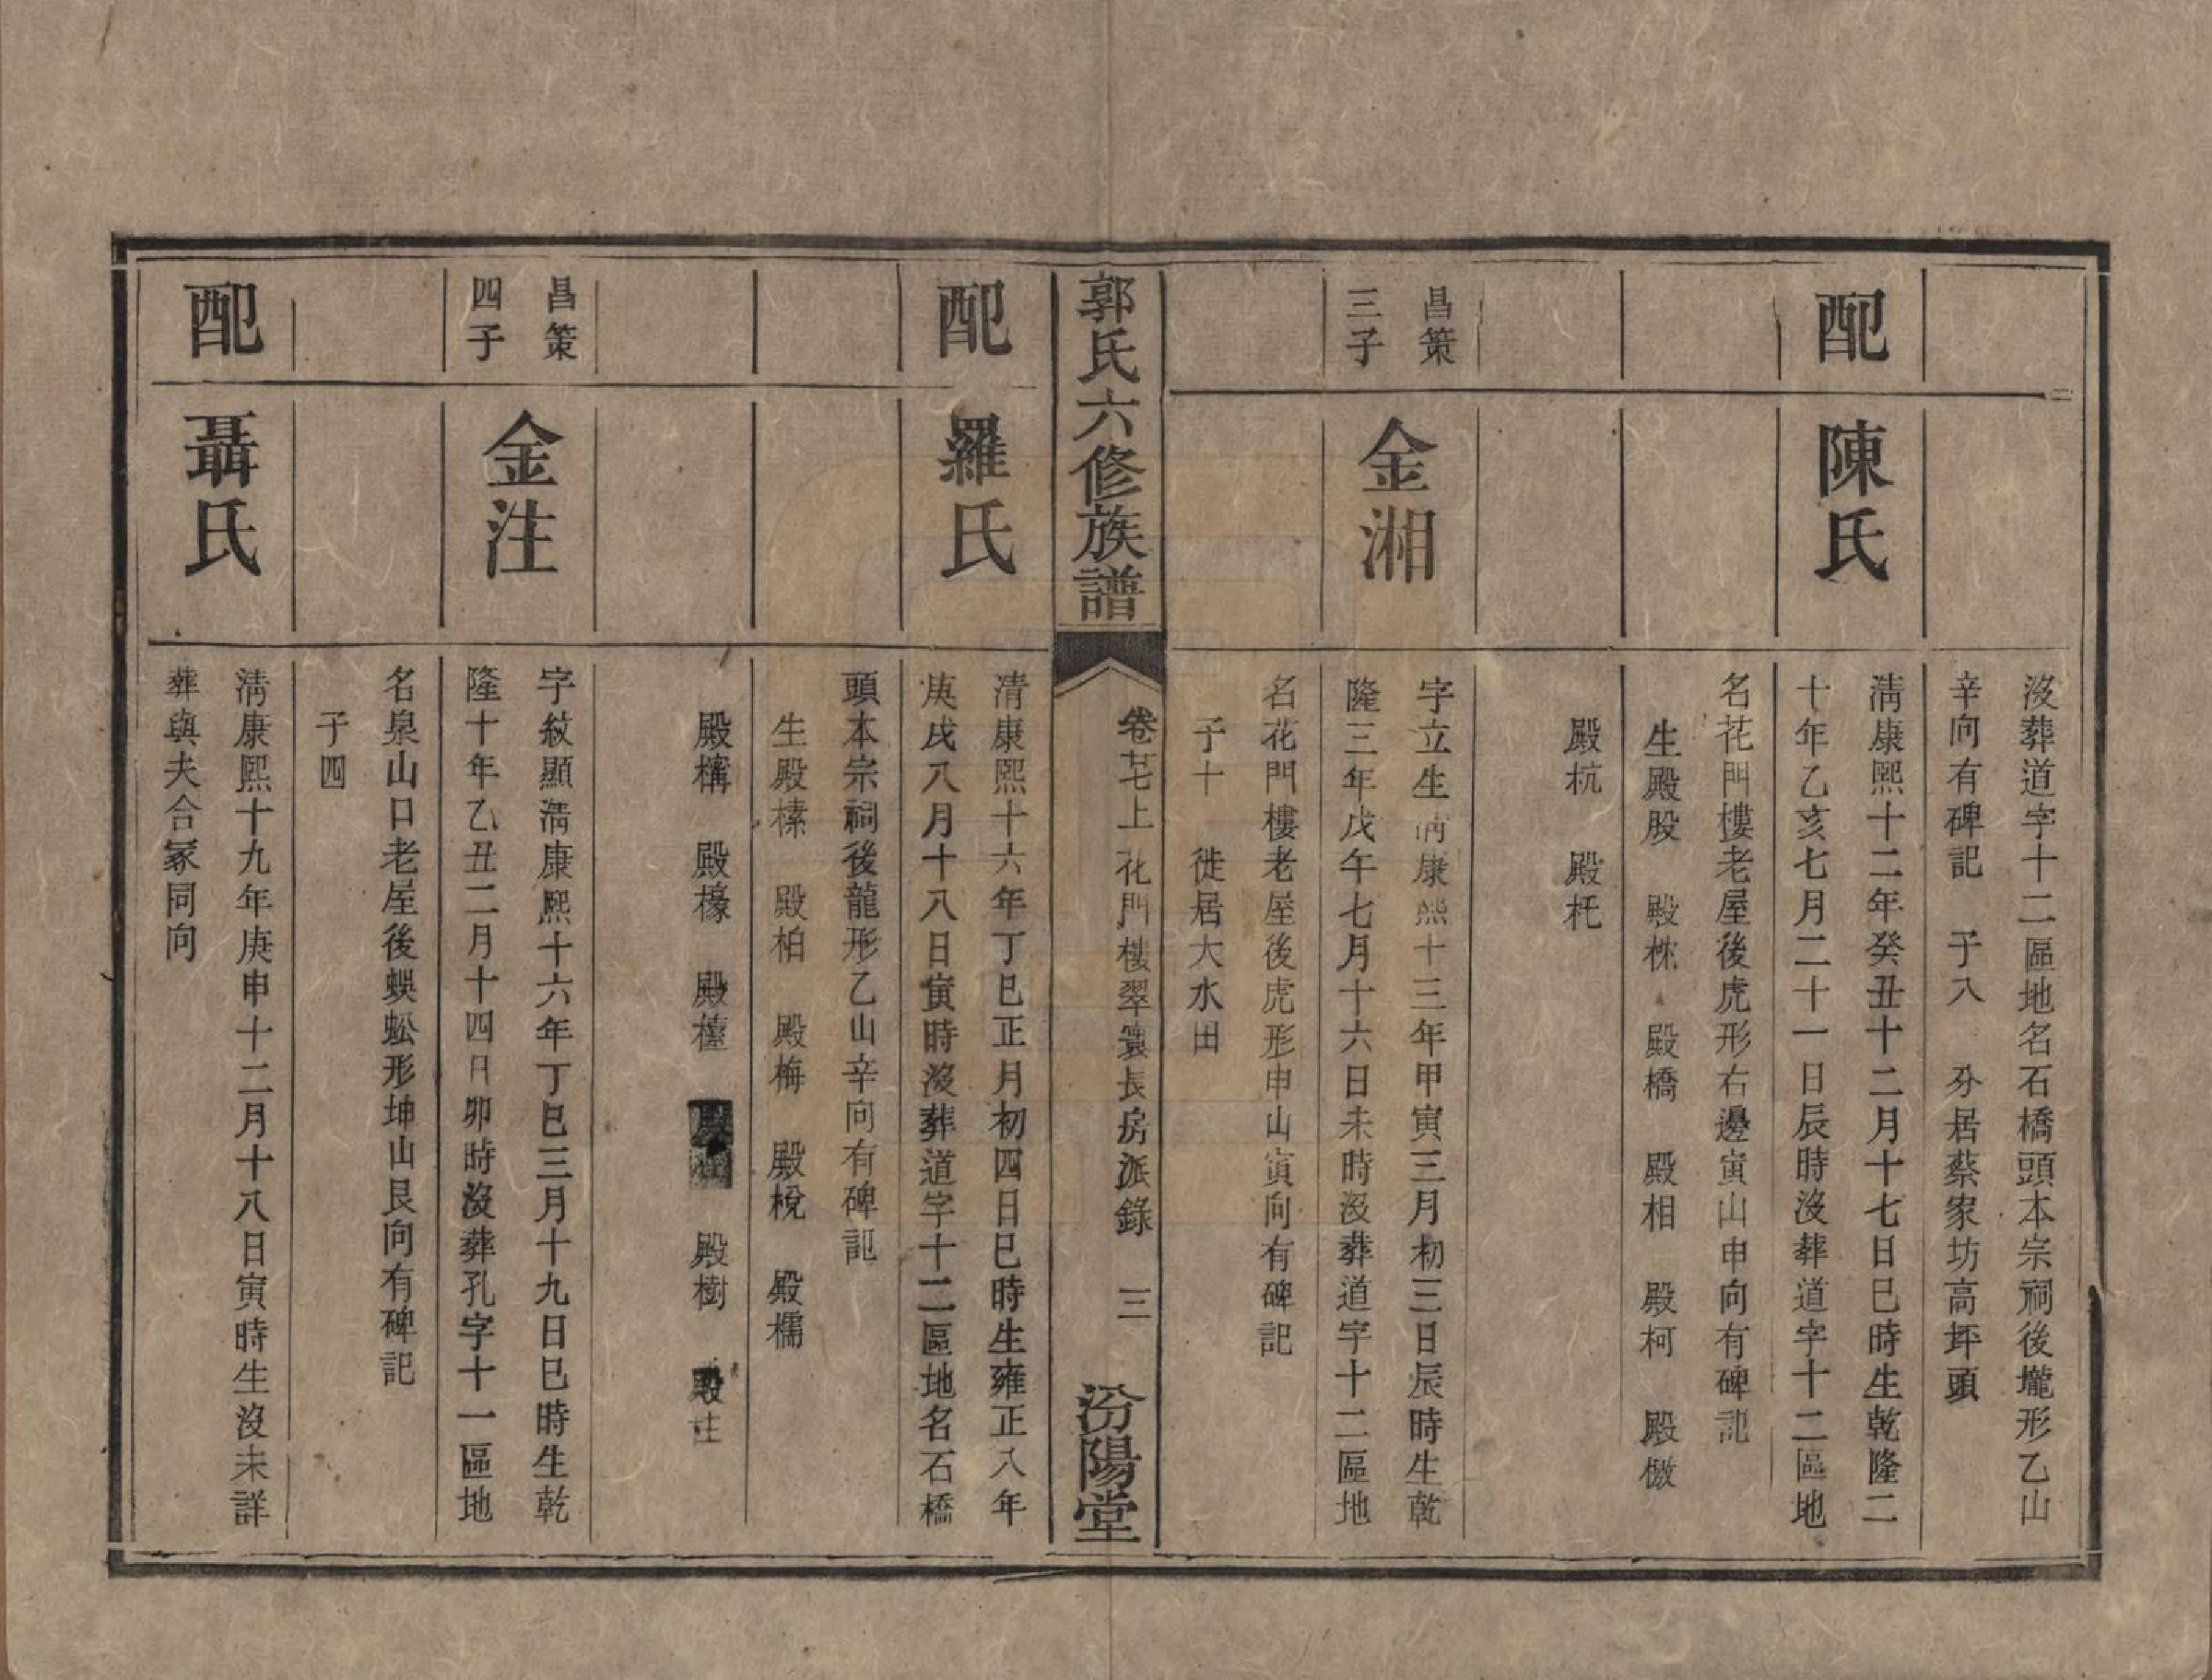 沒葬道字十二區地名石橋頭本宗祠後壠形乙山
辛向有碑記 子八 分居蔡家坊高坪頭
配
陳氏
清康熙十二年癸丑十二月十七日巳時生乾隆二
十年乙亥七月二十一日辰時沒葬道字十二區地
名花門樓老屋後虎形右邊寅山申向有碑記
生殿股 殿枕 殿橋 殿相 殿柯 殿檄
殿杭 殿杔
昌策
三子
金湘
字立生清康熙十三年甲寅三月初三日辰時生乾
隆三年戊午七月十六日未時沒葬道字十二區地
名花門樓老屋後虎形申山寅向有碑記
子十 徙居大水田
郭氏六修族譜
卷廿七上 花門樓翠寰長房派錄 三
汾陽堂
配
羅氏
清康熙十六年丁巳正月初四日巳時生雍正八年
庚戌八月十八日寅時沒葬道字十二區地名石橋
頭本宗祠後龍形乙山辛向有碑記
生殿榛 殿柏 殿梅 殿梲 殿檽
殿構 殿檺 殿樁 殿 殿樹 殿
昌策
四子
金注
字紋顯清康熙十六年丁巳三月十九日巳時生乾
隆十年乙丑二月十四日卯時沒葬孔字十一區地
名泉山口老屋後蜈蚣形坤山艮向有碑記
子四
配
聶氏
清康熙十九年庚申十二月十八日寅時生沒未詳
葬與夫合冢同向